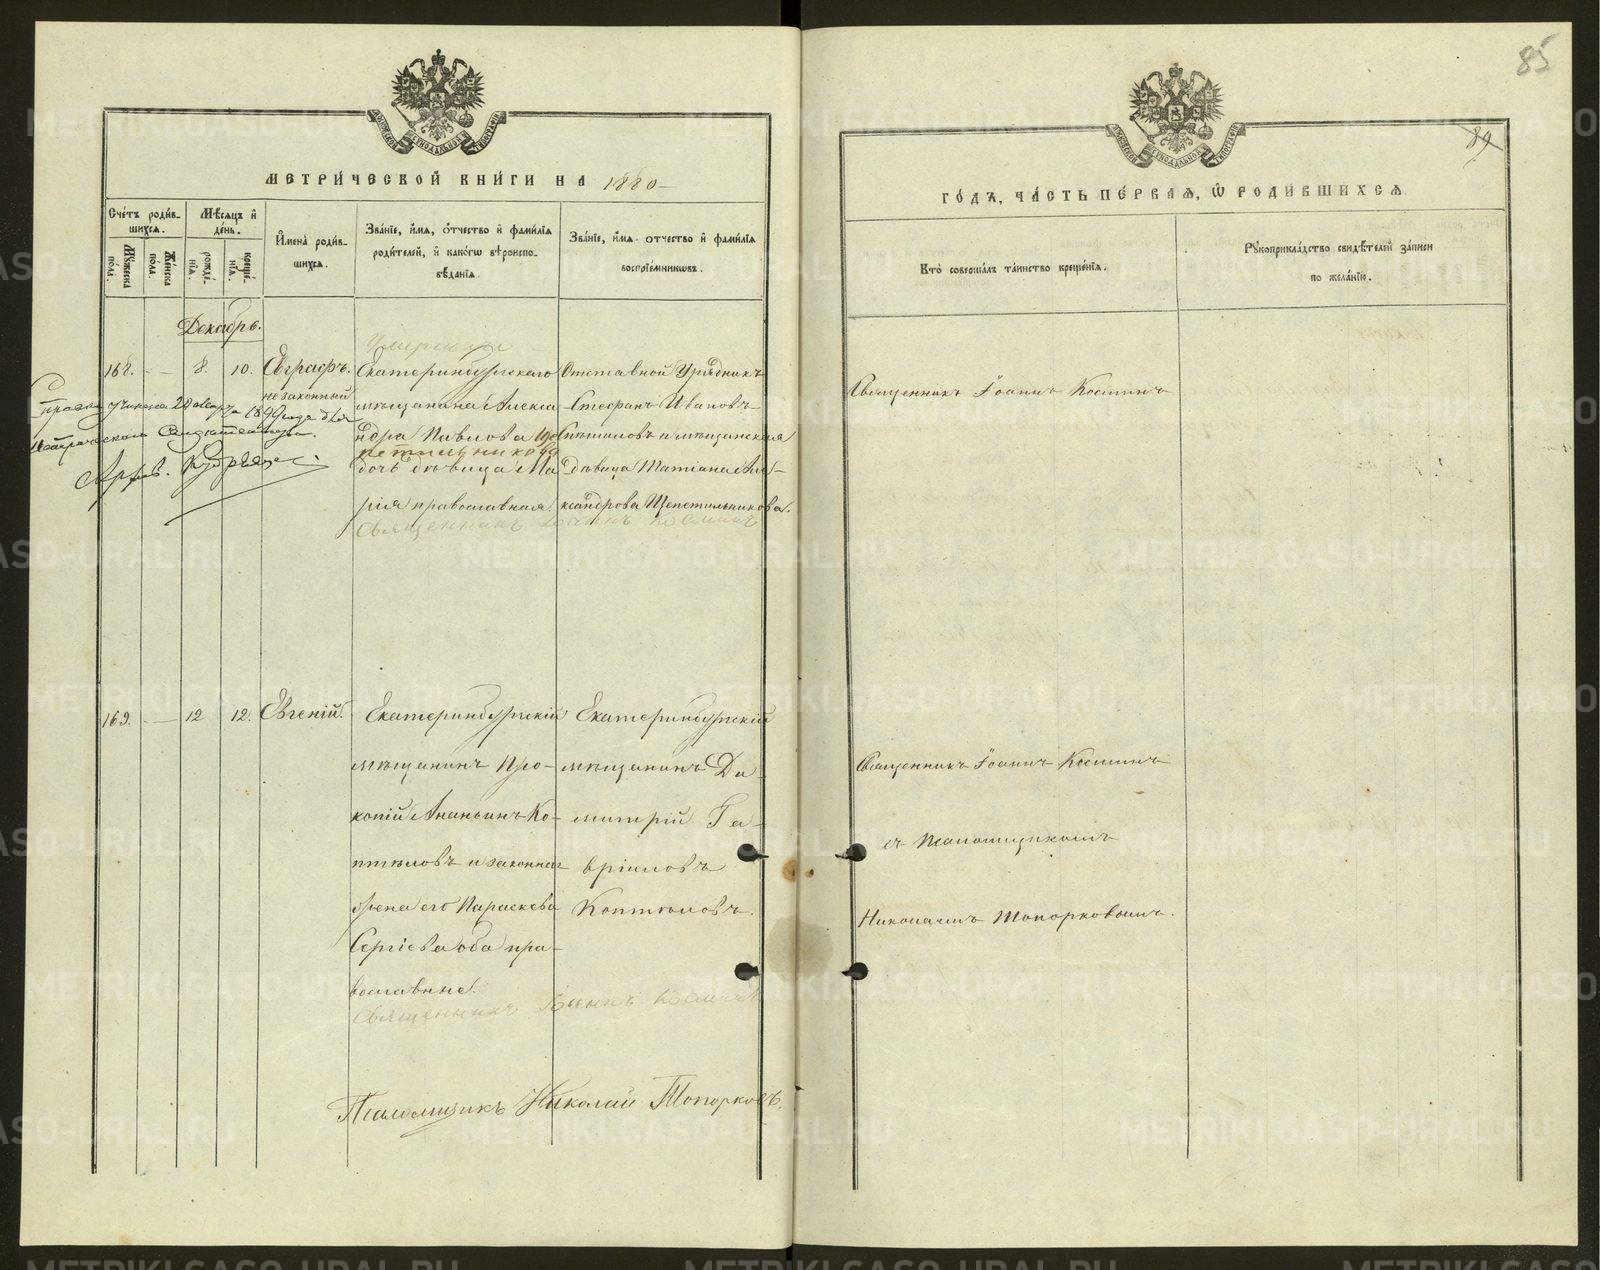 85
89
МЕТРИ́ЧЕСКОЙ КНИ́ГИ НА 1880
ГО́ДЪ, ЧА́СТЬ ПЕ́РВАЯ, Ѡ РОДИ́ВШИХСЯ
Сче́тъ роди́в-
шихся.
Мꙋжеска по́ла.
Же́нска по́ла.
Мѣсяцъ и день.
рожде́-
нїя.
креще́-
нїя.
И҆мена̀ роди́в-
шихся.
Зва́нїе, и҆́мя, о҆́тчество и҆ фами́лїя
роди́телей, и҆ како́гѡ вѣроиспо-
вѣ́данїя.
Зва́нїе, и҆́мя, о҆́тчество и҆ фами́лїя
воспрїе́мникѡвъ.
Кто̀ соверша́лъ та́инство креще́нїя.
Рꙋкоприкла́дство свидѣ́телей за́писи
по жела́нїю.
Декабрь.
168. — 8. 10. Евграфъ.
незаконный
Екатеринбургскаго
мѣщанина Алекса
ндра Павлова Ще
петильникова
дочь дѣвица Ма
рія православная.
Священникъ Іоаннъ Костинъ
Отставной Урядникъ
Стефанъ Ивановъ
и мѣщанская
дѣвица Татіана Але-
ксандрова Щепетильникова.
Священникъ Іоаннъ Костинъ
169. — 12 12. Евгеній.
Екатеринбургскій
мѣщанинъ Про-
копій Ананьинъ Ко-
птѣловъ и законная
жена его Параскева
Сергіева оба пра-
вославные.
Священникъ Іоаннъ Костинъ
Екатеринбургскій
мѣщанинъ Ди-
митрій Га-
вріиловъ
Коптѣловъ.
Священникъ Іоаннъ Костинъ
съ Псаломщикомъ
Николаемъ Топорковымъ.
Псаломщикъ Николай Топорковъ.
METRIKI.GASO-URAL.RU